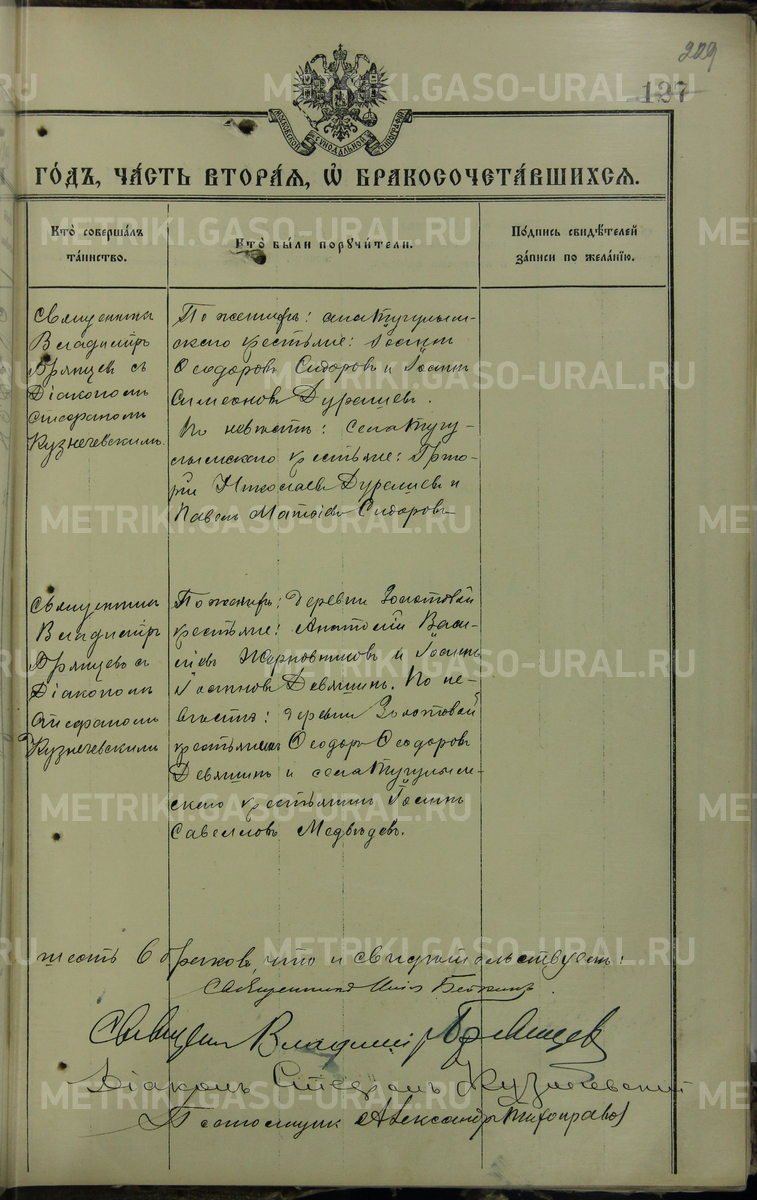 209
127
МОСКОВСКОЙ СѴНОДАЛЬНОЙ ТИПОГРАФІИ
ГО́ДЪ, ЧА́СТЬ ВТОРА́Я, Ѡ҆ БРАКОСОЧЕТА́ВШИХСЯ.
Кто̀ соверша́лъ
та́инство.
Кто̀ бы́ли поручи́тели.
По́дпись свидѣ́телей
за́писи по жела́нїю.
Священникъ
Владиміръ
Прящев съ
Діакономъ
Стефаномъ
Кузнечевскимъ.
По женихѣ: села Тугулым-
скаго крестьяне: Іоаннъ
Ѳеодоровъ Сидоровъ и Іоаннъ
Симеоновъ Дурлиев.
По невѣстѣ: села Тугу-
лымскаго крестьяне: Григо-
рій Николаевъ и
Павелъ Матѳіевъ Сидоровъ
Священникъ
Владиміръ
Прящевъ съ
Діакономъ
Стефаномъ
Кузнечевскимъ
По женихѣ: деревни Золотовой
крестьяне: Анатолій Васи-
ліевъ Жерновниковъ и Іоаннъ
Іоанновъ Девяшинъ. По не-
вѣстѣ: деревни Золотовой
крестьянинъ Ѳеодоръ Ѳеодоровъ
Девяшинъ и села Тугулым-
скаго крестьянинъ Іоаннъ
Савелловъ Медвѣдевъ.
шесть 6 браковъ, что и свидѣтельствуемъ:
Священникъ
Священникъ Владиміръ Прящев
Діаконъ Стефанъ Кузнечевский
Псаломщикъ Александръ Тихоправов
METRIKI.GASO-URAL.RU